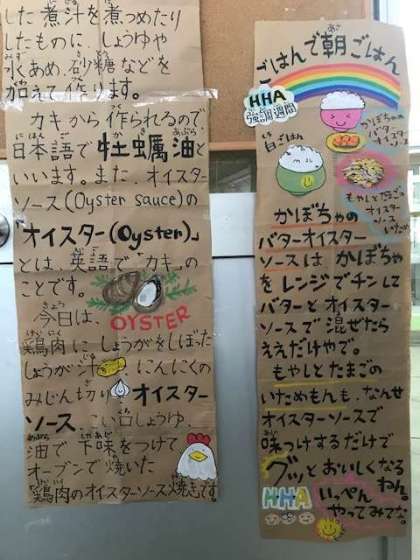 した煮汁を煮つめたり
したものに、しょうゆや
水あめ、砂糖などを
加えて作ります。
カキから作られるので
日本語で牡蠣油と
いいます。また、オイスター
ソース(Oyster sauce)の
「オイスター(Oyster)」
とは、英語で「カキ」の
ことです。
今日は、
OYSTER
鶏肉に しょうがをしぼった
しょうが汁、にんにくの
みじん切り オイスター
ソース、こい口しょうゆ、
油で下味をつけて
オーブンで焼いた
鶏肉のオイスターソース焼きです。
ごはんで朝ごはん
HHA
強調週間
白ごはん
かぼちゃの
バター
オイスター
もやしとたまごの
オイスター
ソース
かぼちゃの
バターオイスター
ソースは かぼちゃ
を レンジでチンして
バターと オイスター
ソースで 混ぜたら
ええだけやで。
もやしと たまごの
いためもんも、なんせ
オイスターソースで
味つけするだけで
グッと おいしくなる
ねん。
HHA いっぺん
やってみてな。